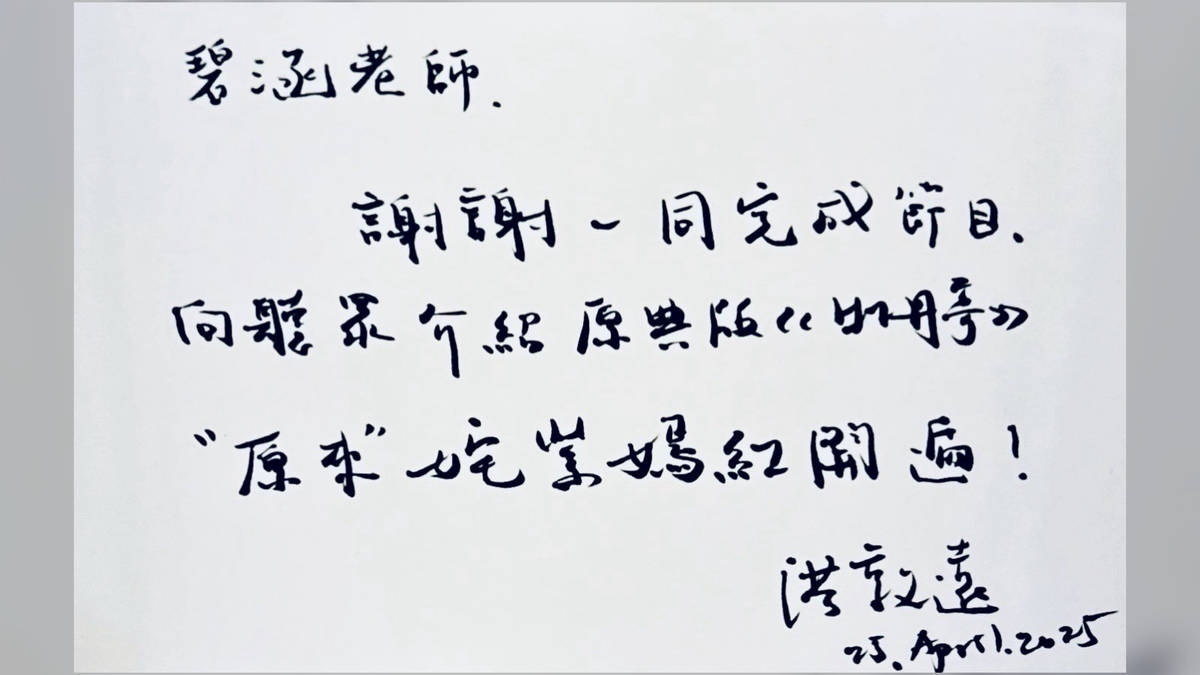 碧涵老師.
謝謝一同完成節目.
向聽眾介紹原典版《牡丹亭》
"原來"姹紫嫣紅開遍!
洪敦遠
25. April. 2025